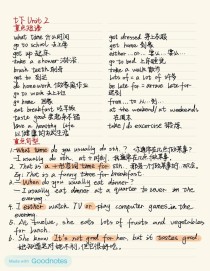 七下 Unit 2
重点短语
what time 什么时间
go to school 去上学
get up 起床
take a shower 洗淋浴
brush teeth 刷牙
get to 到达
do homework 做作业
go to work 去上班
go home 回家
eat breakfast 吃早饭
taste good 尝起来不错
get dressed 穿上衣服
get home 到家
either…or…
go to bed 上床睡觉
take a walk 散步
lots of = a lot of 许多
be late for = arrive late for
迟到
from…to…
at the weekend / at weekends
在周末
take / do exercise 锻炼
重点句型
1. What time do you usually do sth. ?
— I usually do sth. at + 时间.
2. That is a time for sth.
Eg: That is a funny time for breakfast.
3. — When do you usually eat dinner?
— I usually eat dinner at a quarter to seven in the
evening.
4. I either watch TV or play computer games in the
evening.
5. At twelve, she eats lots of fruits and vegetables
for lunch.
6. She knows It's not good for her, but it tastes good.
Made with Goodnotes